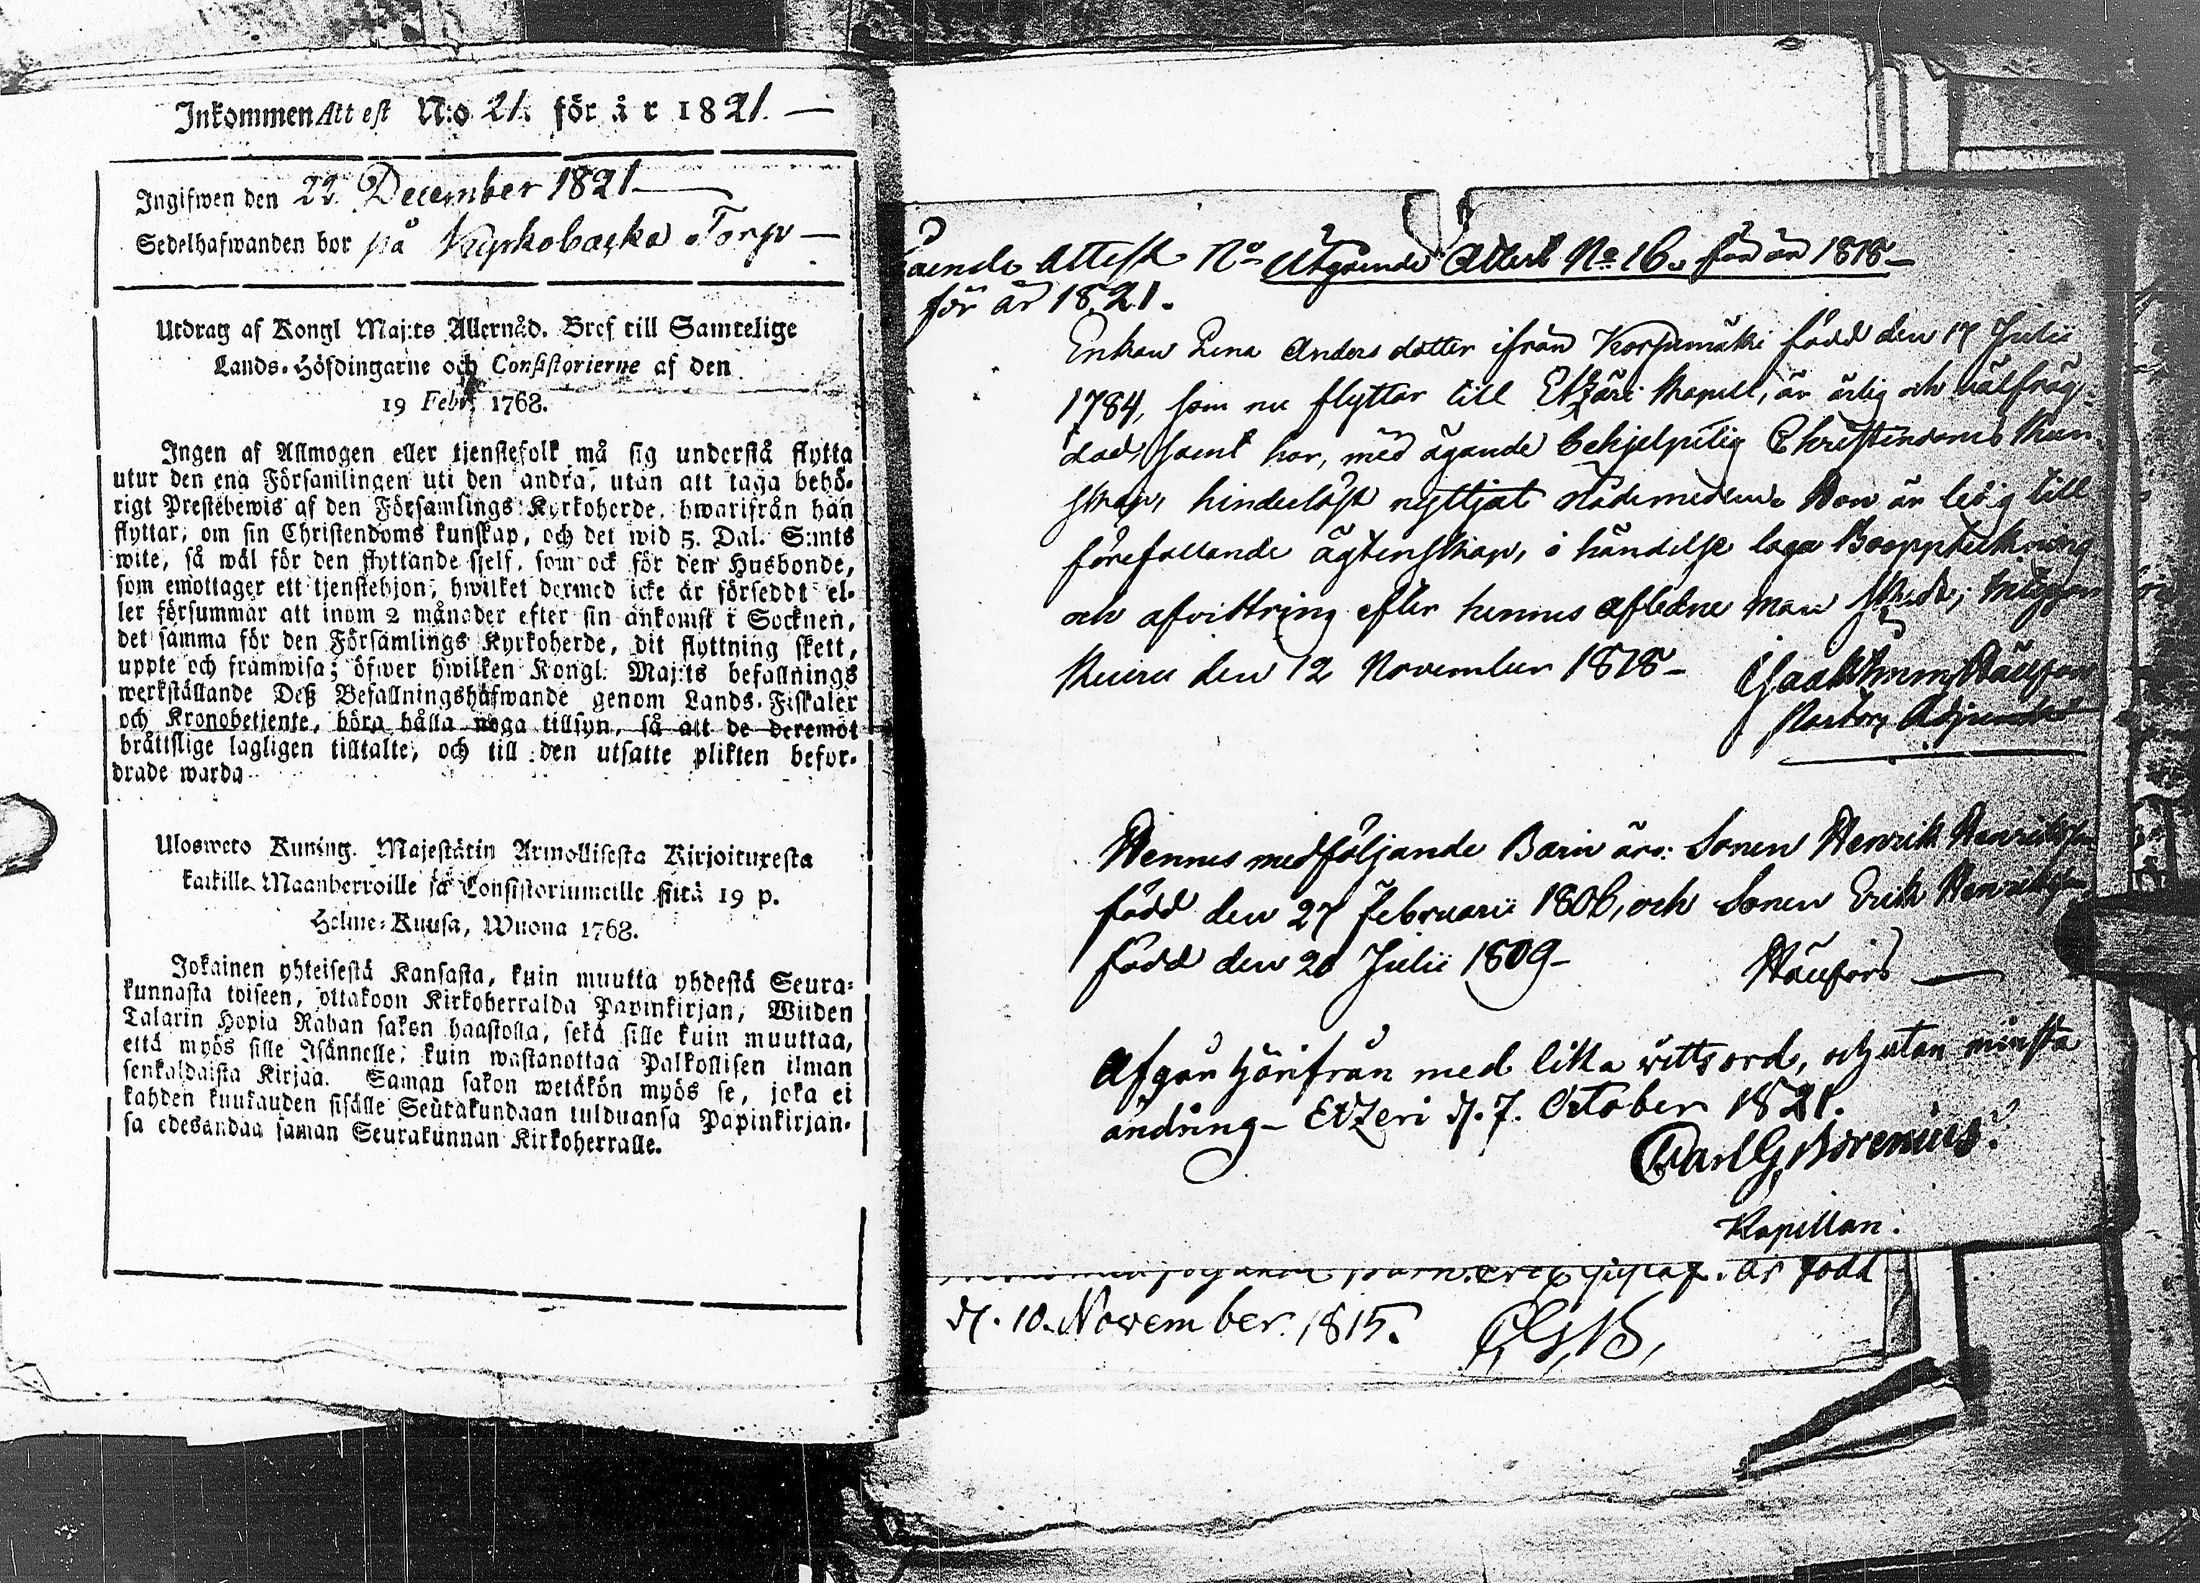 Inkommen Att est N:o 21. för år 1821. —
Ingifwen den 22. December 1821 —
Sedelhafwanden bor på Kyrkobacka Torp —
Utdrag af Kongl Maj:ts Allernåd. Bref till Samtelige
Lands-Höfdingarne och Consistorierne af den
19 Febr. 1768.
Ingen af Allmogen eller tjenstefolk må sig understå flytta
utur den ena Församlingen uti den andra, utan att taga behö-
rigt Prestebewis af den Församlings Kyrkoherde, hwarifrån han
flyttar, om sin Christendoms kunskap, och det wid 5. Dal. S:mts
wite, så wäl för den flyttande sjelf, som ock för den Husbonde,
som emottager ett tjenstehjon, hwilket dermed icke är förseddt el-
ler försummar att inom 2 månader efter sin ankomst i Socknen,
det samma för den Församlings Kyrkoherde, dit flyttning skett,
uppte och framwisa; öfwer hwilken Kongl. Maj:ts befallnings
werkställande Deß Befallningshafwande genom Lands-Fiskaler
och Kronobetjente, böra hålla noga tillsyn, så att de deremot
bråttslige lagligen tilltalte, och till den utsatte plikten befor-
drade warda
Ulosweto Kuning. Majestätin Armollisesta Kirjoituxesta
kaikille Maanherroille ja Consistoriumeille siitä 19 p.
Helme-Kuusa, Wuona 1768.
Jokainen yhteisestä Kansasta, kuin muutta yhdestä Seura-
kunnasta toiseen, ottakoon Kirkoherralda Papinkirjan, Wiiden
Talarin Hopia Rahan sakon haastolla, sekä sille kuin muuttaa,
että myös sille Isännelle, kuin wastanottaa Palkollisen ilman
senkaldaista Kirjaa. Saman sakon wetäkön myös se, joka ei
kahden kuukauden sisälle Seurakundaan tulduansa Papinkirjan-
sa edesandaa saman Seurakunnan Kirkoherralle.
gående Attest No Utgående Attest No 16. för år 1818 —
för år 1821.
Enkan Lena Anders dotter ifrån Korpimäki född den 17 Julii
1784, som nu flyttar till Etzäri Kapell, är ärlig och välfräg-
dad, samt har, med ägande behjelpelig Christendoms Kun
skap, hinderlöst nyttjat nådemedlen. Hon är ledig till
förefallande ägtenskap, i händelse laga Bouppteckning
och afvittring efter hennes aflidne man skedt;
Kuru den 12 November 1818 —
Pastors Adjunkt
Hennes medföljande Barn äro: Sonen Henrik Henriksson
född den 27 Februarii 1806, och Sonen Erik Henriksson
född den 20 Julii 1809 —
Afgår härifrån med lika wittsord, och utan minsta
ändring — Etzeri d. 7. October 1821.
Carl G. Borenius.
Kapellan.
är född
d. 10. November. 1815. C, G, B,